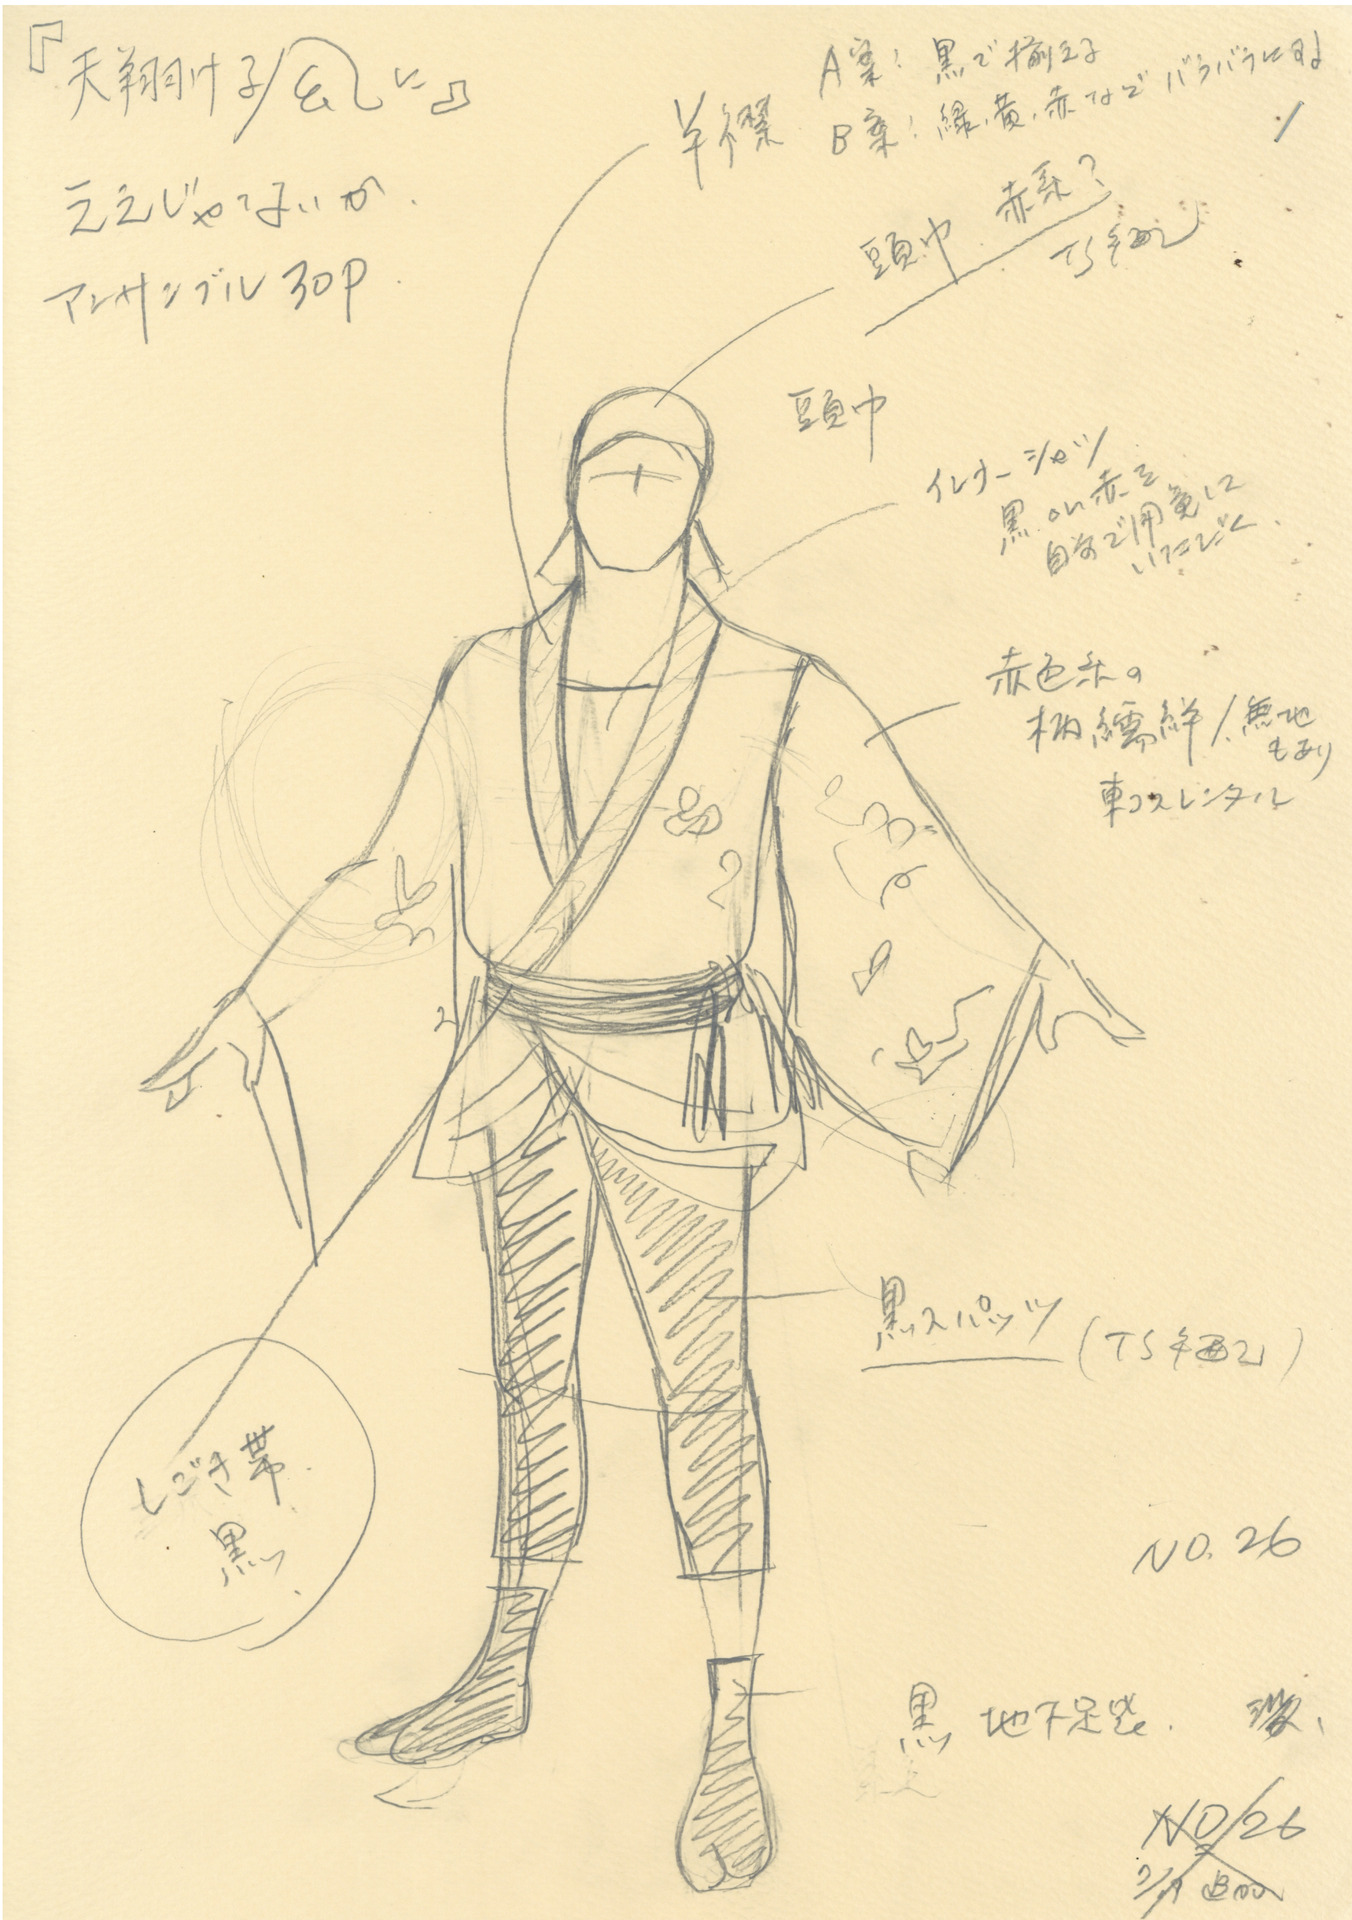 『天翔ける風に』
ええじゃないか.
アンサンブル 30P.
半襟
A案: 黒で揃える
B案: 緑、黄、赤などバラバラにする
頭巾 赤系?
TS手配
頭巾
インナーシャツ
黒 or 赤を
自分で用意して
いただく.
赤色系の
柄襦袢/無地
もあり
東コスレンタル
黒スパッツ (TS手配)
しごき帯
黒
NO.26
黒 地下足袋.
NO.26